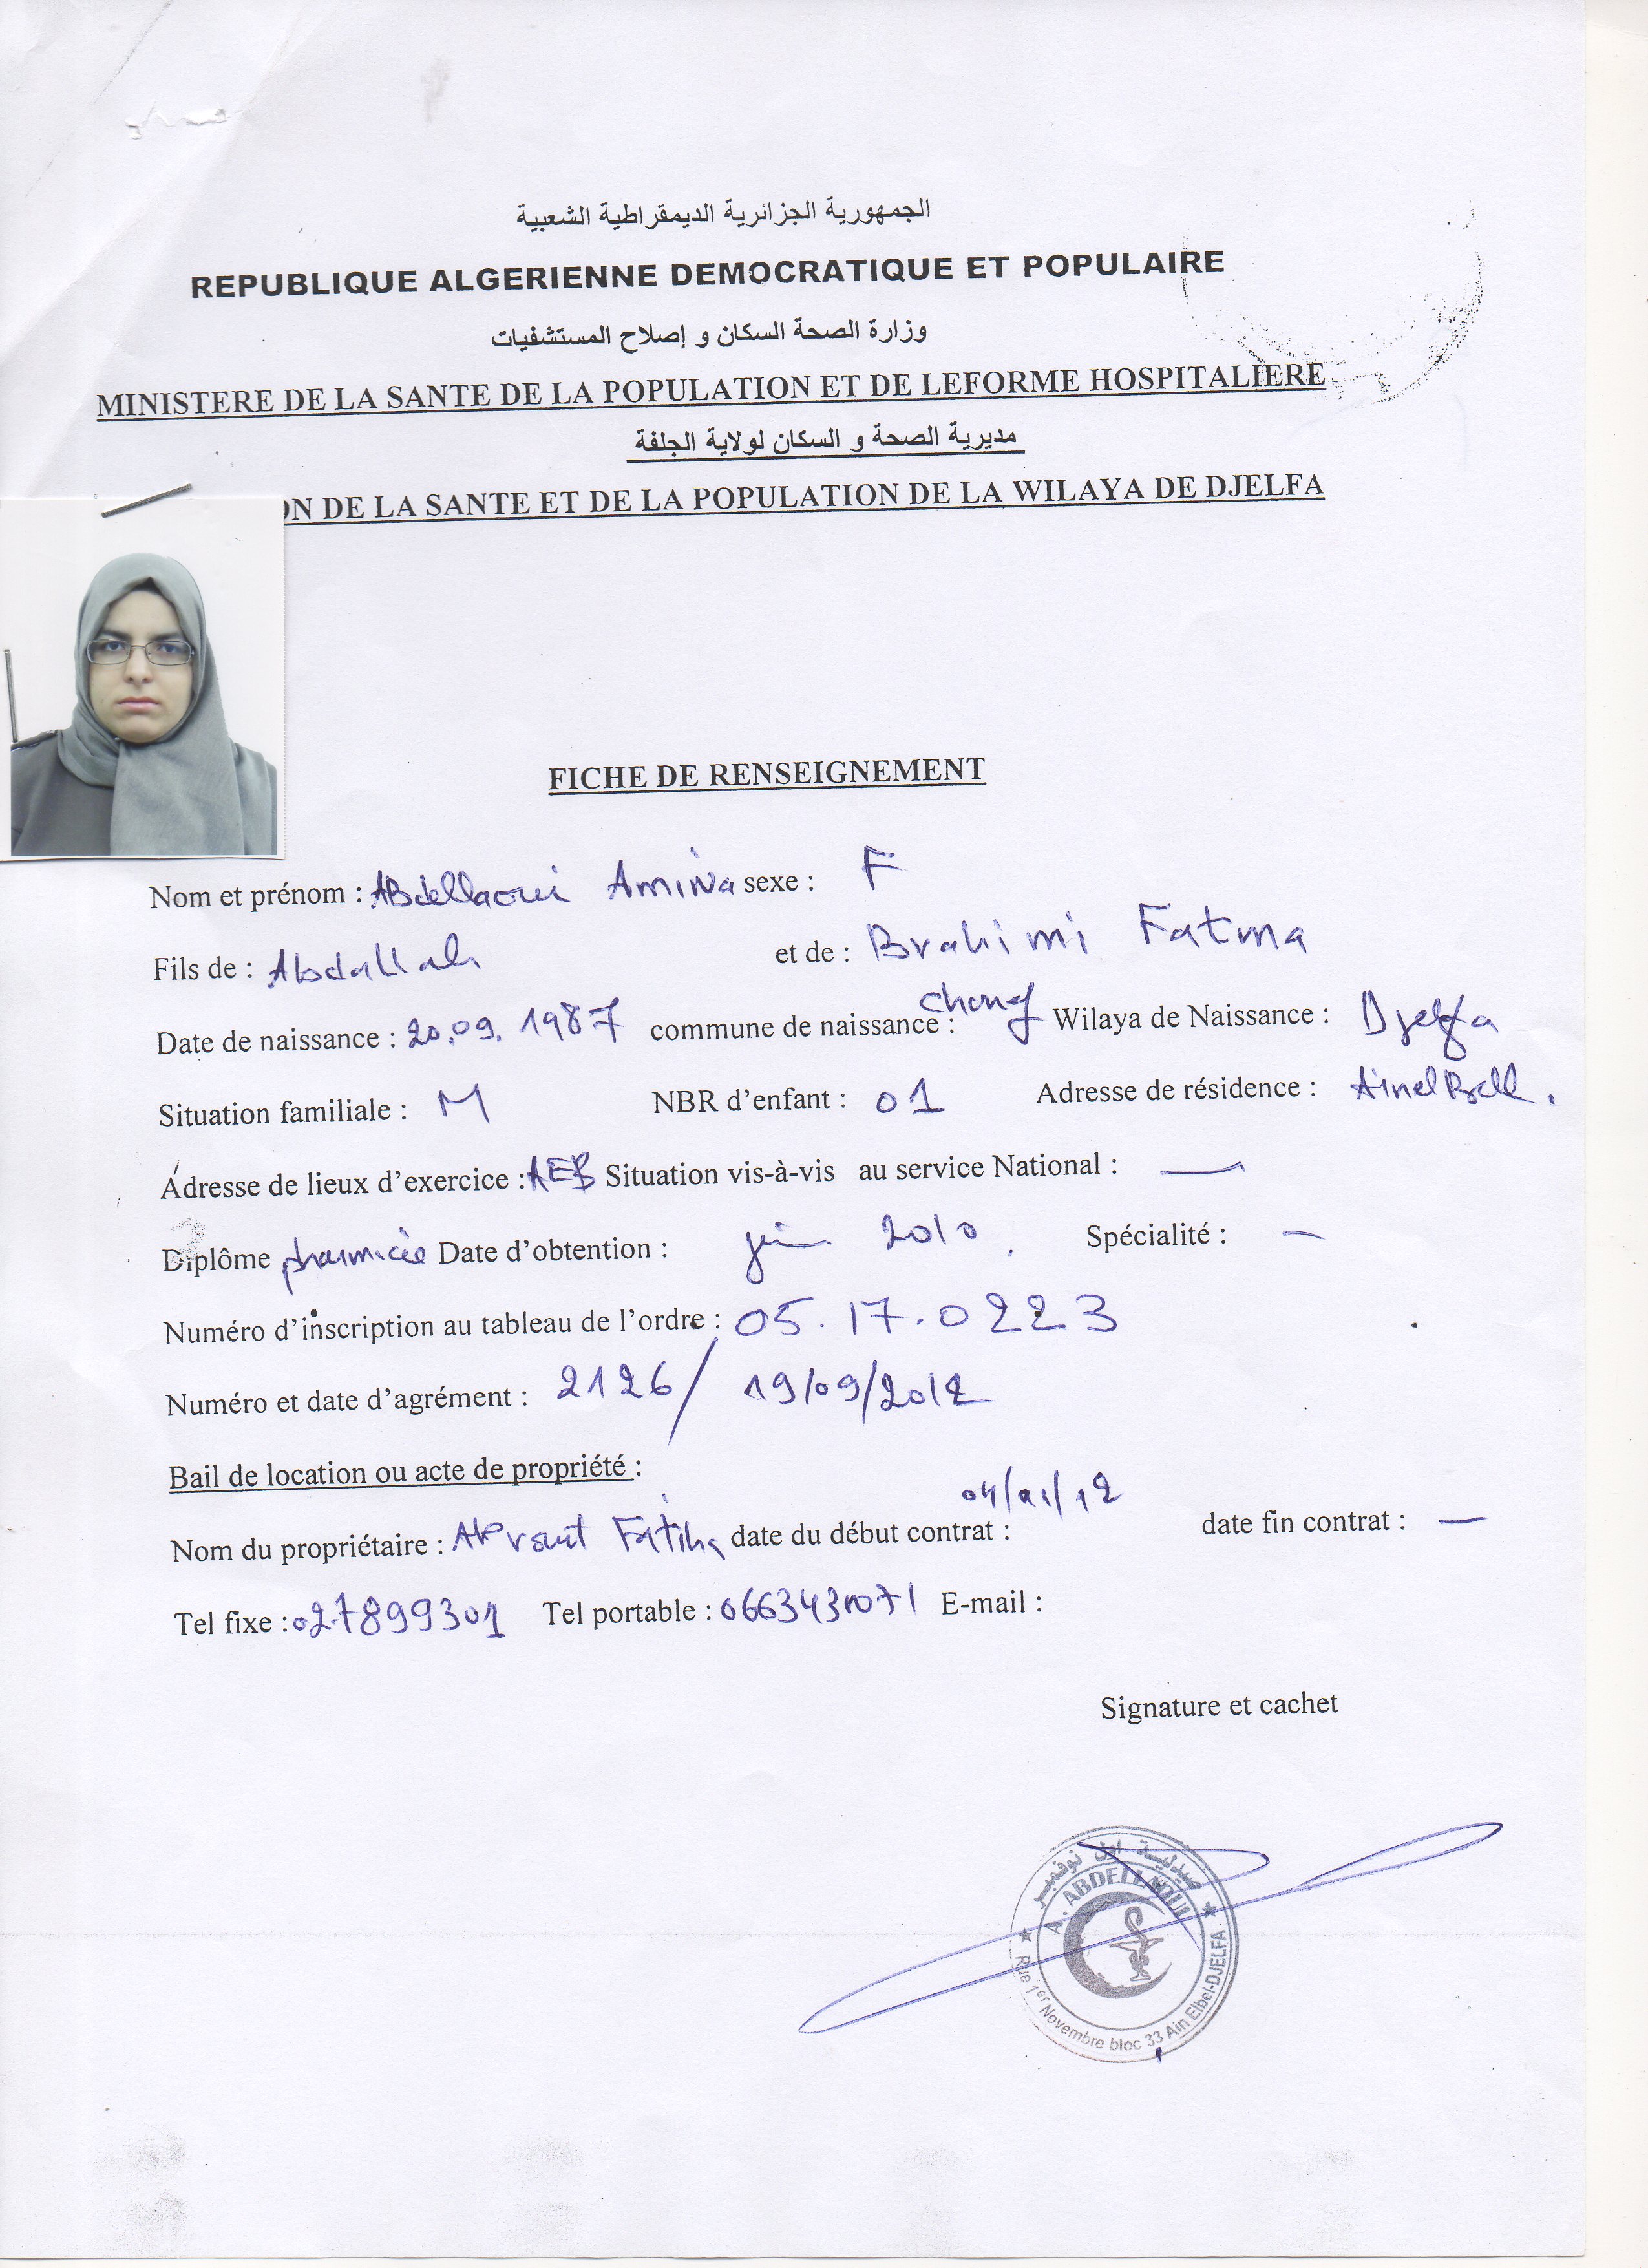 الجمهورية الجزائرية الديمقراطية الشعبية
REPUBLIQUE ALGERIENNE DEMOCRATIQUE ET POPULAIRE
وزارة الصحة السكان و إصلاح المستشفيات
MINISTERE DE LA SANTE DE LA POPULATION ET DE LEFORME HOSPITALIERE
مديرية الصحة و السكان لولاية الجلفة
ON DE LA SANTE ET DE LA POPULATION DE LA WILAYA DE DJELFA
FICHE DE RENSEIGNEMENT
Nom et prénom : ABdellaoui Amina sexe : F
Fils de : Abdallah et de : Brahimi Fatma
Date de naissance : 20.09.1987 commune de naissance : Wilaya de Naissance : Djelfa
Situation familiale : M NBR d'enfant : 01 Adresse de résidence : Ain el Bell.
Adresse de lieux d'exercice : AEB Situation vis-à-vis au service National : —
Diplôme pharmacie Date d'obtention : juin 2010. Spécialité : —
Numéro d'inscription au tableau de l'ordre : 05.17.0223
Numéro et date d'agrément : 2126 / 19/09/2012
Bail de location ou acte de propriété :
Nom du propriétaire : Fatiha date du début contrat : date fin contrat : —
Tel fixe : 027899301 Tel portable : E-mail :
Signature et cachet
صيدلية اول نوفمبر
A. ABDELLAOUI
Rue 1er Novembre bloc 33 Ain Elbel-DJELFA